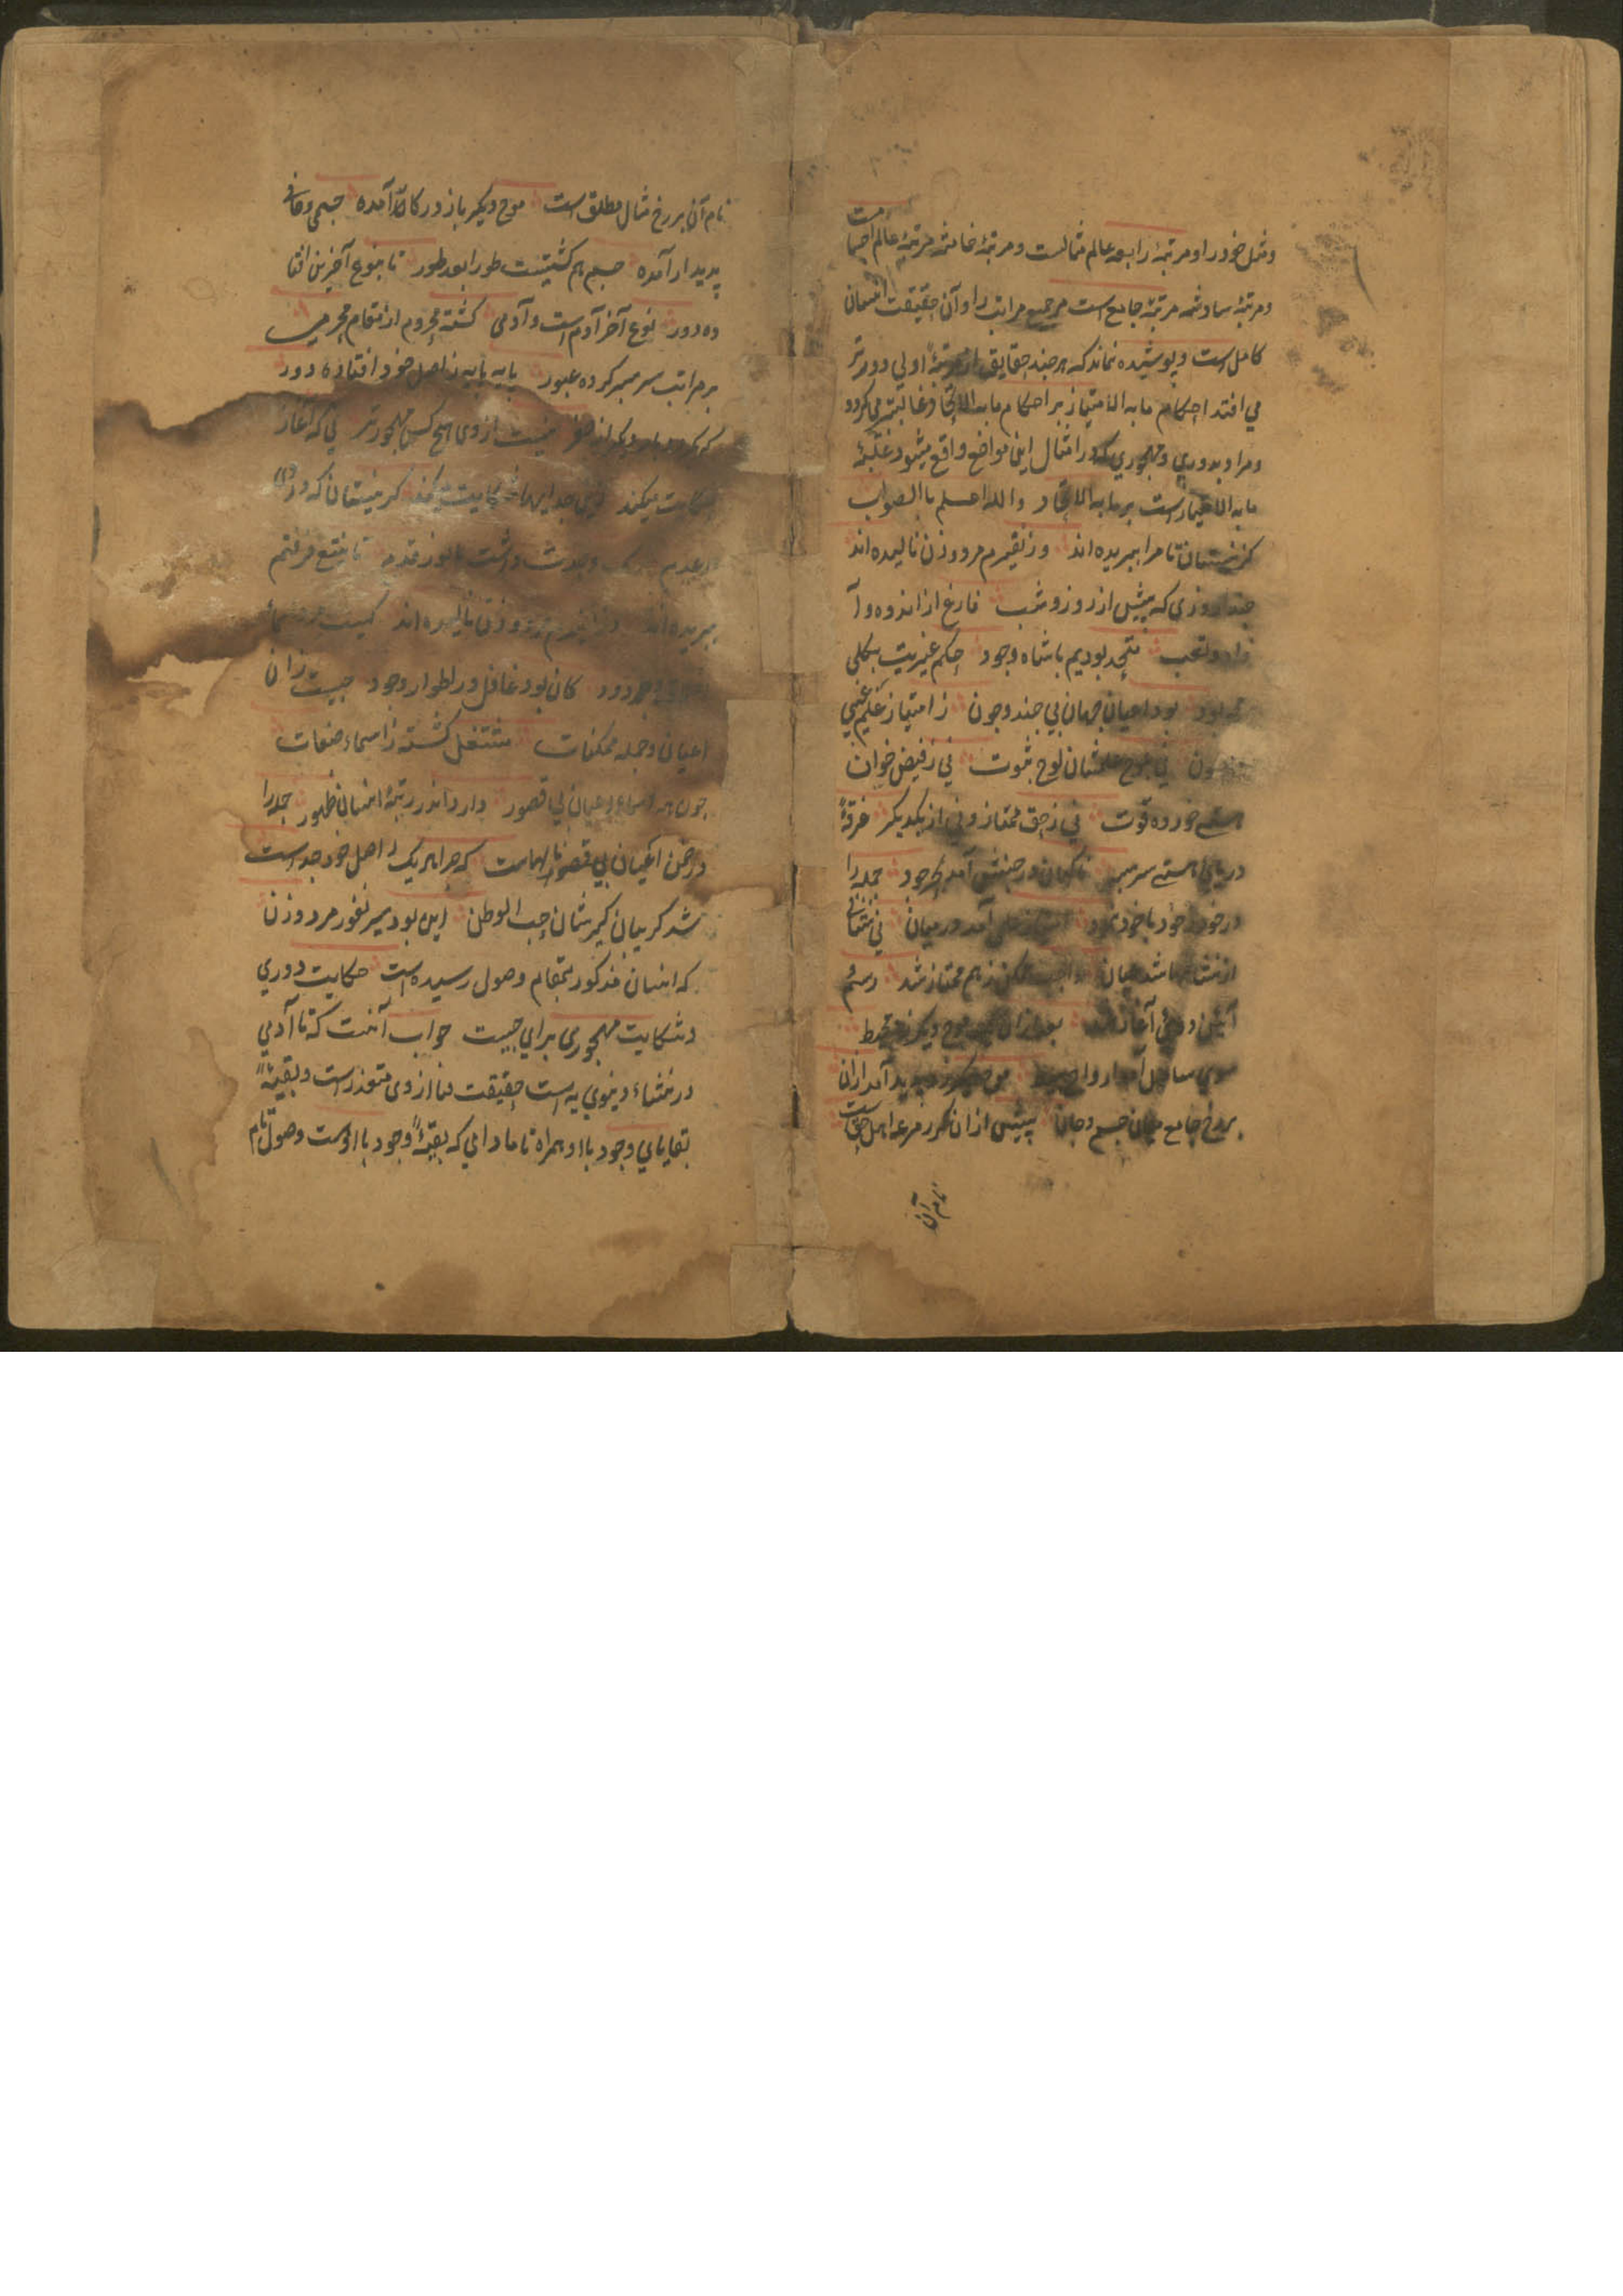 ومثل خود را و مرتبۀ رابعه عالم مثالست و مرتبۀ خامسه مرتبۀ عالم اجسام است
و مرتبۀ سادسه مرتبۀ جامع است مر جمیع مراتب را و آن حقیقت انسان
کامل است و پوشیده نماند که هر چند حقایق از مرتبۀ اولی دورتر
می افتد احکام ما به الامتیاز بر احکام ما به الاتحاد غالبتر می کردد
و مراد بدوری و مهجوری که در امثال این مواضع واقع میشود غلبۀ
ما به الامتیاز است بر ما به الاتحاد والله اعلم باالصواب
کز نیستان تا مرا ببریده اند وز نفیرم مرد و زن نالیده اند
حبذا روزی که پیش از روز و شب فارغ از اندوه و آ
زاد و تعب متحد بودیم با شاه وجود حکم غیریت بکلی
محو بود بود اعیان جهان بی چند و چون ز امتیاز علم عینی
مصون نی بلوح علمشان لوح ثبوت نی ز فیض خوان
هستی خورده قوت نی ز حق ممتاز و نی از یکدیکر غرقۀ
دریای هستی سر بسر ناکهان در جنبش آمد بحر جود جمله را
در خود ز خود با خود نمود امتیاز علمی آمد در میان بی نشانی
از نشانها شد عیان واجب و ممکن ز هم ممتاز شد رسم
آیین دوئی آغاز شد بعد ازان یک موج دیکر زد محیط
سوی ساحل آمد ارواح بسیط موج دیکر زد پدید آمد ازان
برزخ جامع میان جسم و جان پیش ازان کز زمرعه اهل حق است
نام آن
نام آن برزخ مثال مطلق است موج دیکر باز در کار آمده جسم و جانی
پدیدار آمده جسم هم کشتست طورا بعد طور تا بنوع آخرین افتا
ده دور نوع آخر آدم است و آدمی کشته محروم از مقام محرمی
بر مراتب سر بسر کرده عبور پایه پایه ز اصل خود افتاده دور
کر نکردد باز دیکر از سفر نیست از وی هیچ کس مهجورتر نی که آغاز
حکایت میکند زین جداییها شکایت میکند کز نیستان که در
عدم رنک وحدت داشت با نور قدم تا بتیغ فرقتم
ببریده اند وز نفیرم مرد و زن نالیده اند کیست مرد اسما
وجود کان بود فاعل در اطوار وجود چیست زن
اعیان و جمله ممکنات منفعل کشته ز اسماء صفات
چون همه اسماء و اعیان بی قصور دارد اندر رتبۀ انسان ظهور جمله را
در ضمن اعیان بی قصور نالهاست که چرا هر یک ز اصل خود جداست
شد کریبان کیرشان حب الوطن این بود سر نفور مرد و زن
که انسان مذکور بمقام وصول رسیده است حکایت دوری
و شکایت مهجوری برای چیست جواب آنست که تا آدمی
در نشاء دنیوی یه است حقیقت فنا از وی متعذر است و بقیۀ
بقایای وجود باا و همراه تا مادامی که بقیۀ وجود باا اوست وصول تام